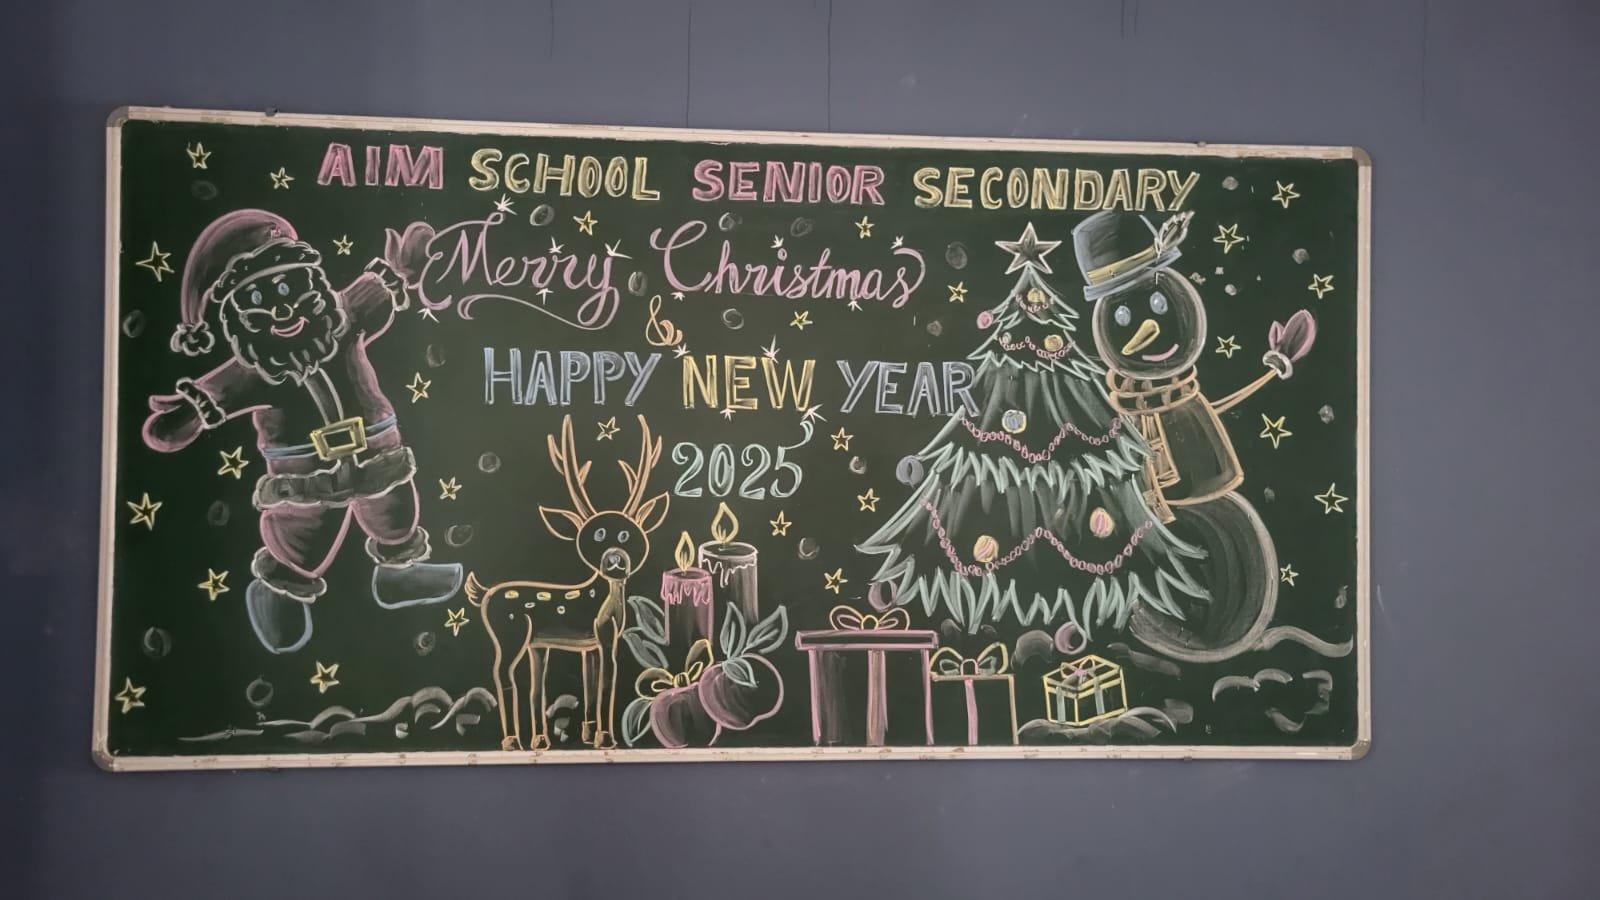 AIM SCHOOL SENIOR SECONDARY
Merry Christmas
&
HAPPY NEW YEAR
2025